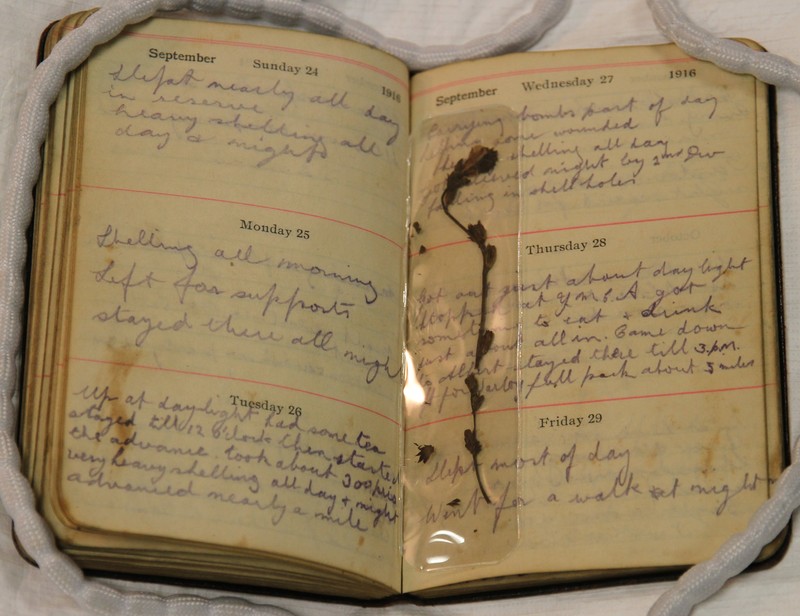 September Sunday 24 1916
Slept nearly all day
in reserve
heavy shelling all
day & night
Monday 25
Shelling all morning
Left for supports
stayed there all night
Tuesday 26
Up at daylight had some tea
stayed till 12 o'clock then started
the advance. took about 300
very heavy shelling all day & night
advanced nearly a mile
September Wednesday 27 1916
Carrying bombs part of day
wounded
shelling all day
relieved night by 2nd Div
in shell holes
Thursday 28
Got out just about daylight
at Y.M.C.A. got
to eat & drink
just about all in. Came down
to Albert stayed there till 3 p.m.
full pack about 5 miles
Friday 29
Slept most of day
Went for a walk at night